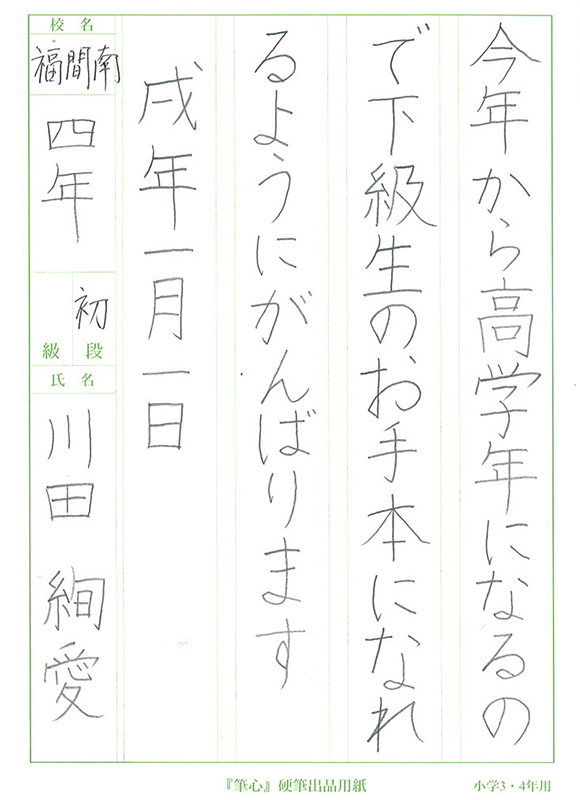 今年から高学年になるの
で下級生のお手本になれ
るようにがんばります
戌年一月一日
校名
福間南
四年
初
段
級
氏名
川田 絢愛
『筆心』硬筆出品用紙
小学3・4年用